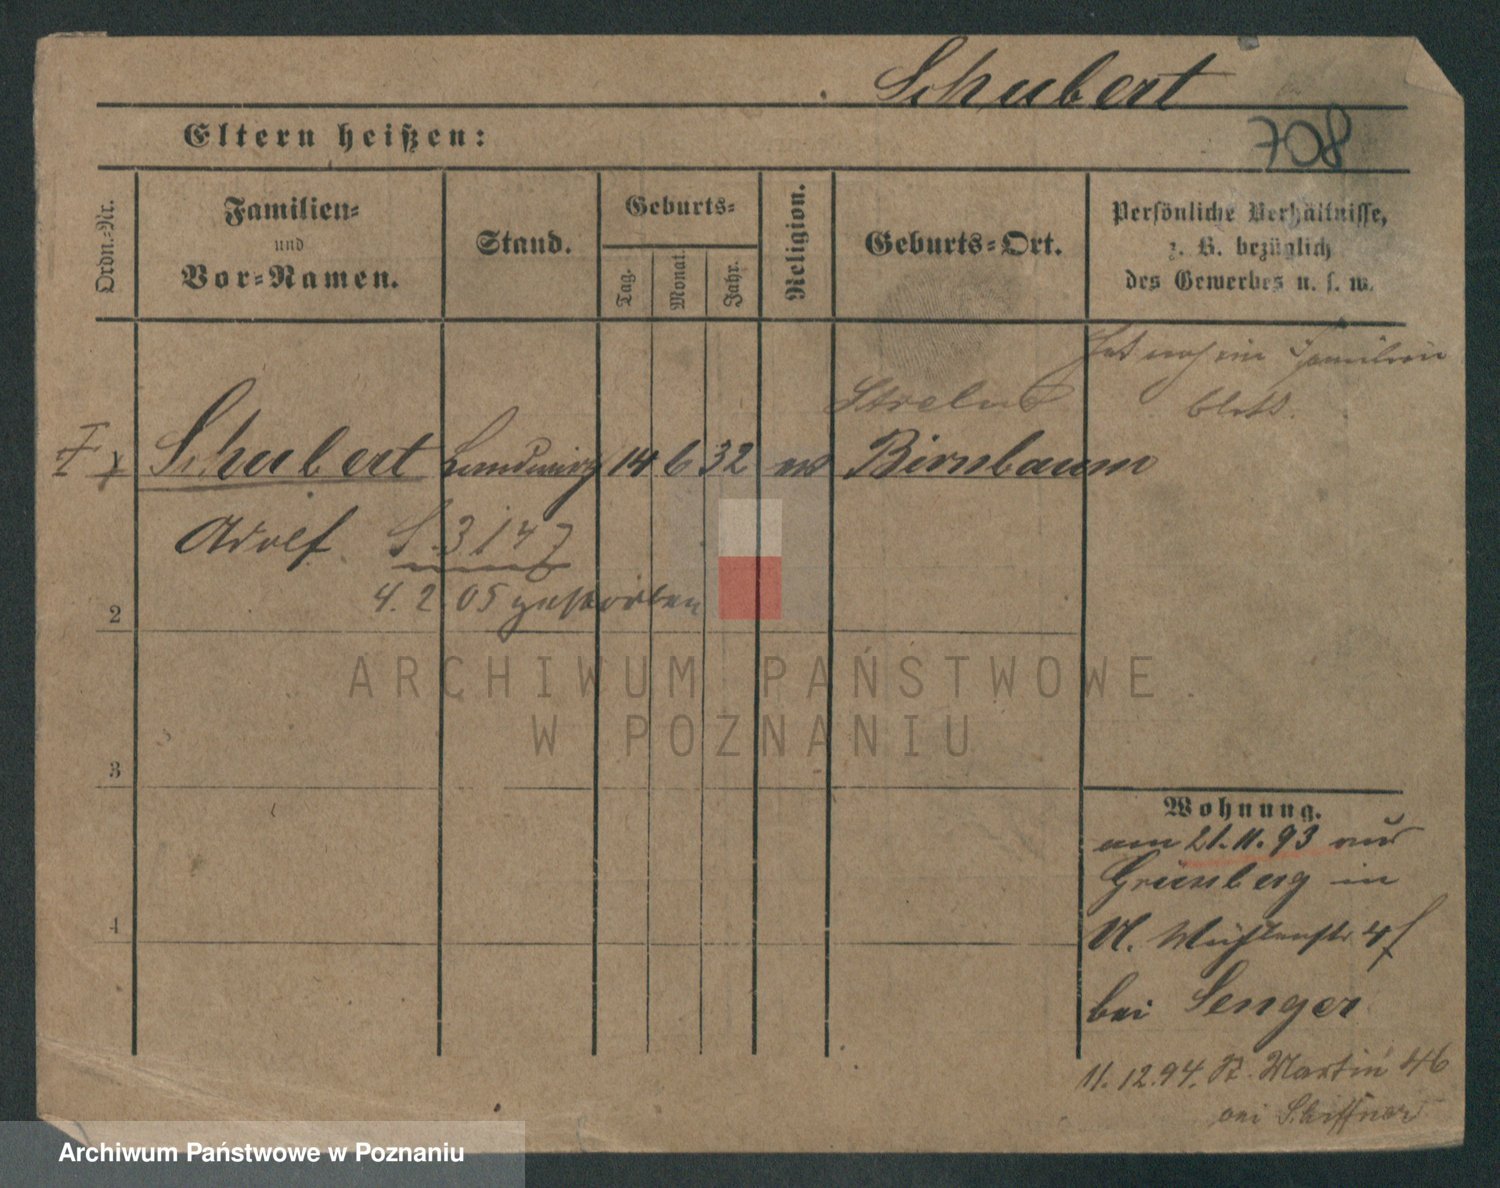 Schubert
Eltern heißen:
708
Ordn.-Nr.
Familien-
und
Vor-Namen.
Stand.
Geburts-
Tag.
Monat.
Jahr.
Religion.
Geburts-Ort.
Persönliche Verhältnisse,
z. B. bezüglich
des Gewerbes u. s. w.
Hat noch ein Familien
blatt.
Strelno
Schubert Landwirt 14 6 32 Birnbaum
Adolf S. 3147
4. 2. 05 gestorben
2
3
4
ARCHIWUM PAŃSTWOWE
W POZNANIU
Wohnung.
am 21. 11. 93 aus
Grünberg in
U. Mühlenstr. 4
bei Senger
11. 12. 94. St. Martin 46
bei Schiffner
Archiwum Państwowe w Poznaniu